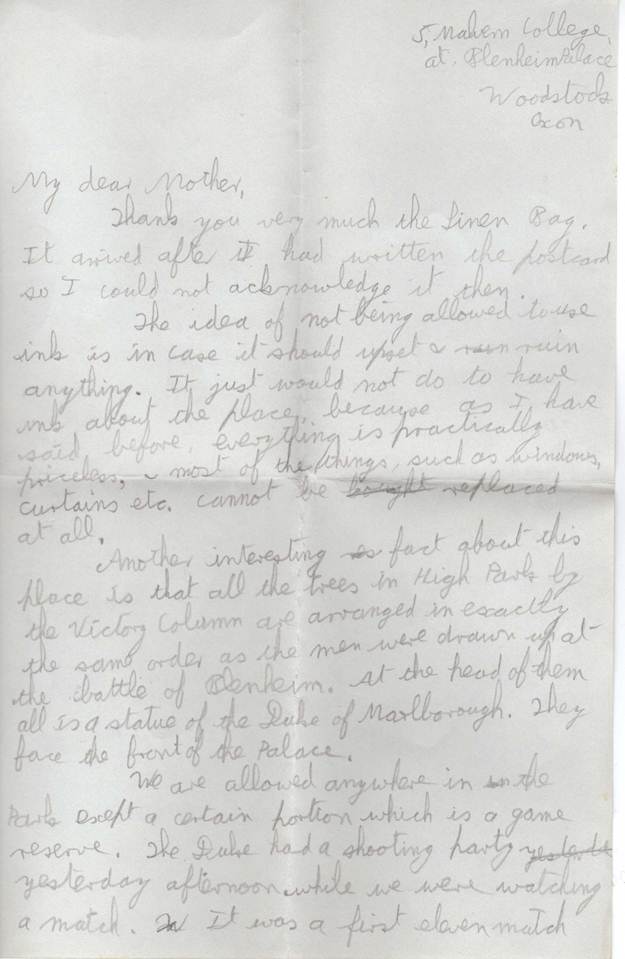 5, Malvern College,
at. Blenheim Palace
Woodstock
Oxon
My dear Mother,
Thank you very much the Linen Bag.
It arrived after I had written the postcard
so I could not acknowledge it then.
The idea of not being allowed to use
ink is in case it should upset & ruin ruin
anything. It just would not do to have
ink about the place, because as I have
said before, everything is practically
priceless, & most of the things, such as windows,
curtains etc. cannot be bought replaced
at all.
Another interesting fact about this
place is that all the trees in High Park by
the Victory Column are arranged in exactly
the same order as the men were drawn up at
the battle of Blenheim. At the head of them
all is a statue of the Duke of Marlborough. They
face the front of the Palace.
We are allowed anywhere in the
Park except a certain portion which is a game
reserve. The Duke had a shooting party
yesterday afternoon while we were watching
a match. It was a first eleven match